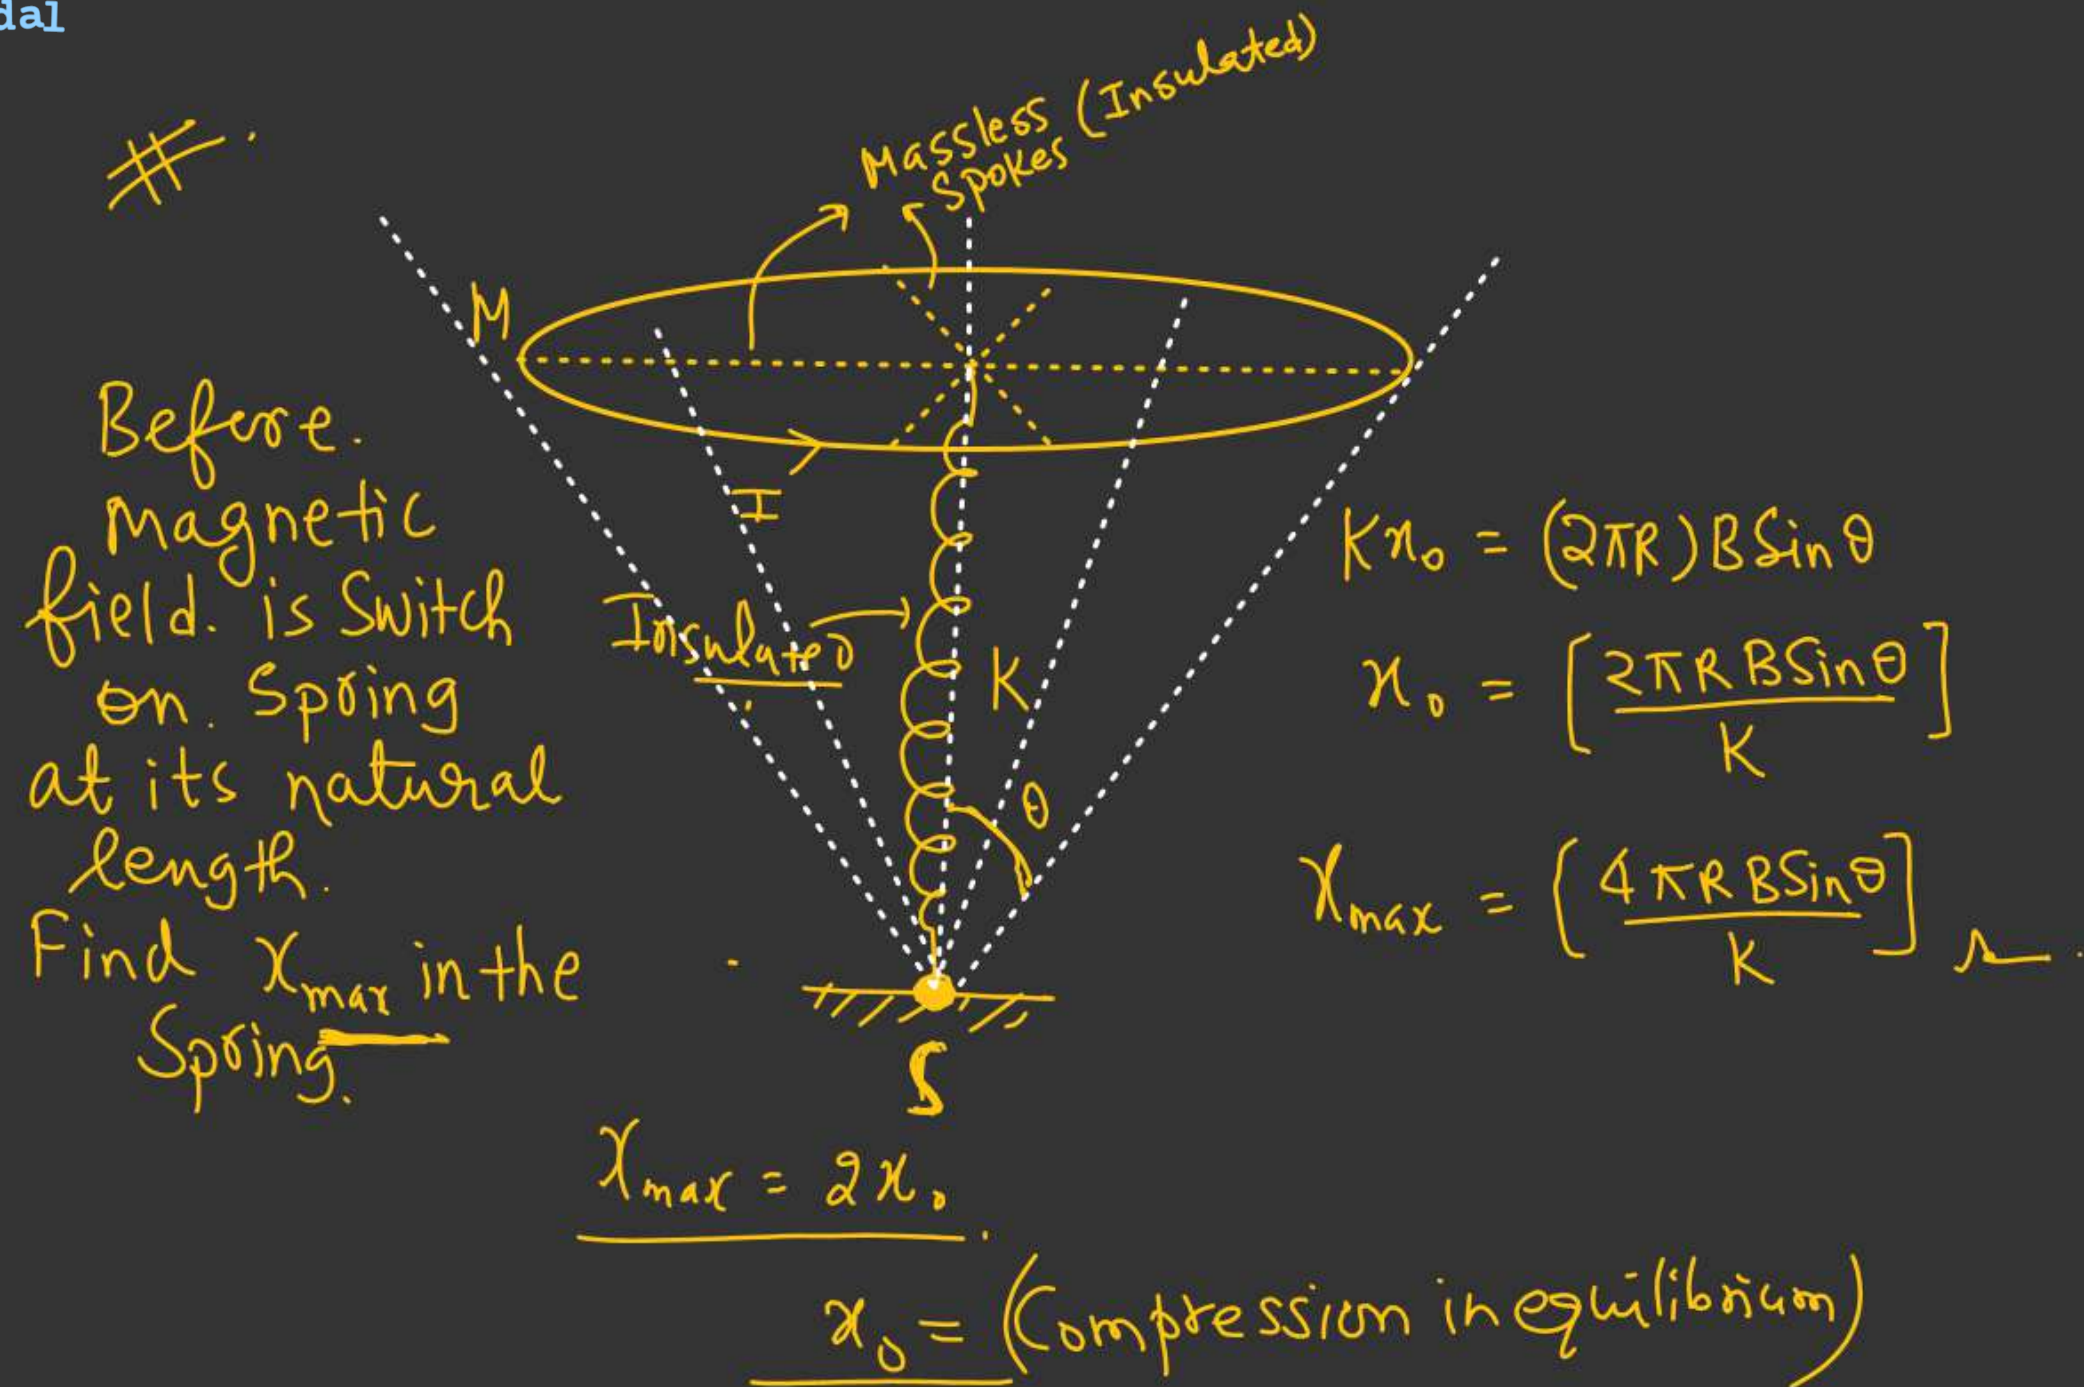 dal
#.
Massless (Insulated)
Spokes
M
I
Before.
magnetic
field. is Switch
on. Spring
at its natural
length.
Find xmax in the
Spring.
Insulated
K
θ
S
Kx₀ = (2πR)B Sin θ
x₀ = [2πR B Sin θ / K]
xmax = [4πR B Sin θ / K]
xmax = 2x₀.
x₀ = (Compression in equilibrium)